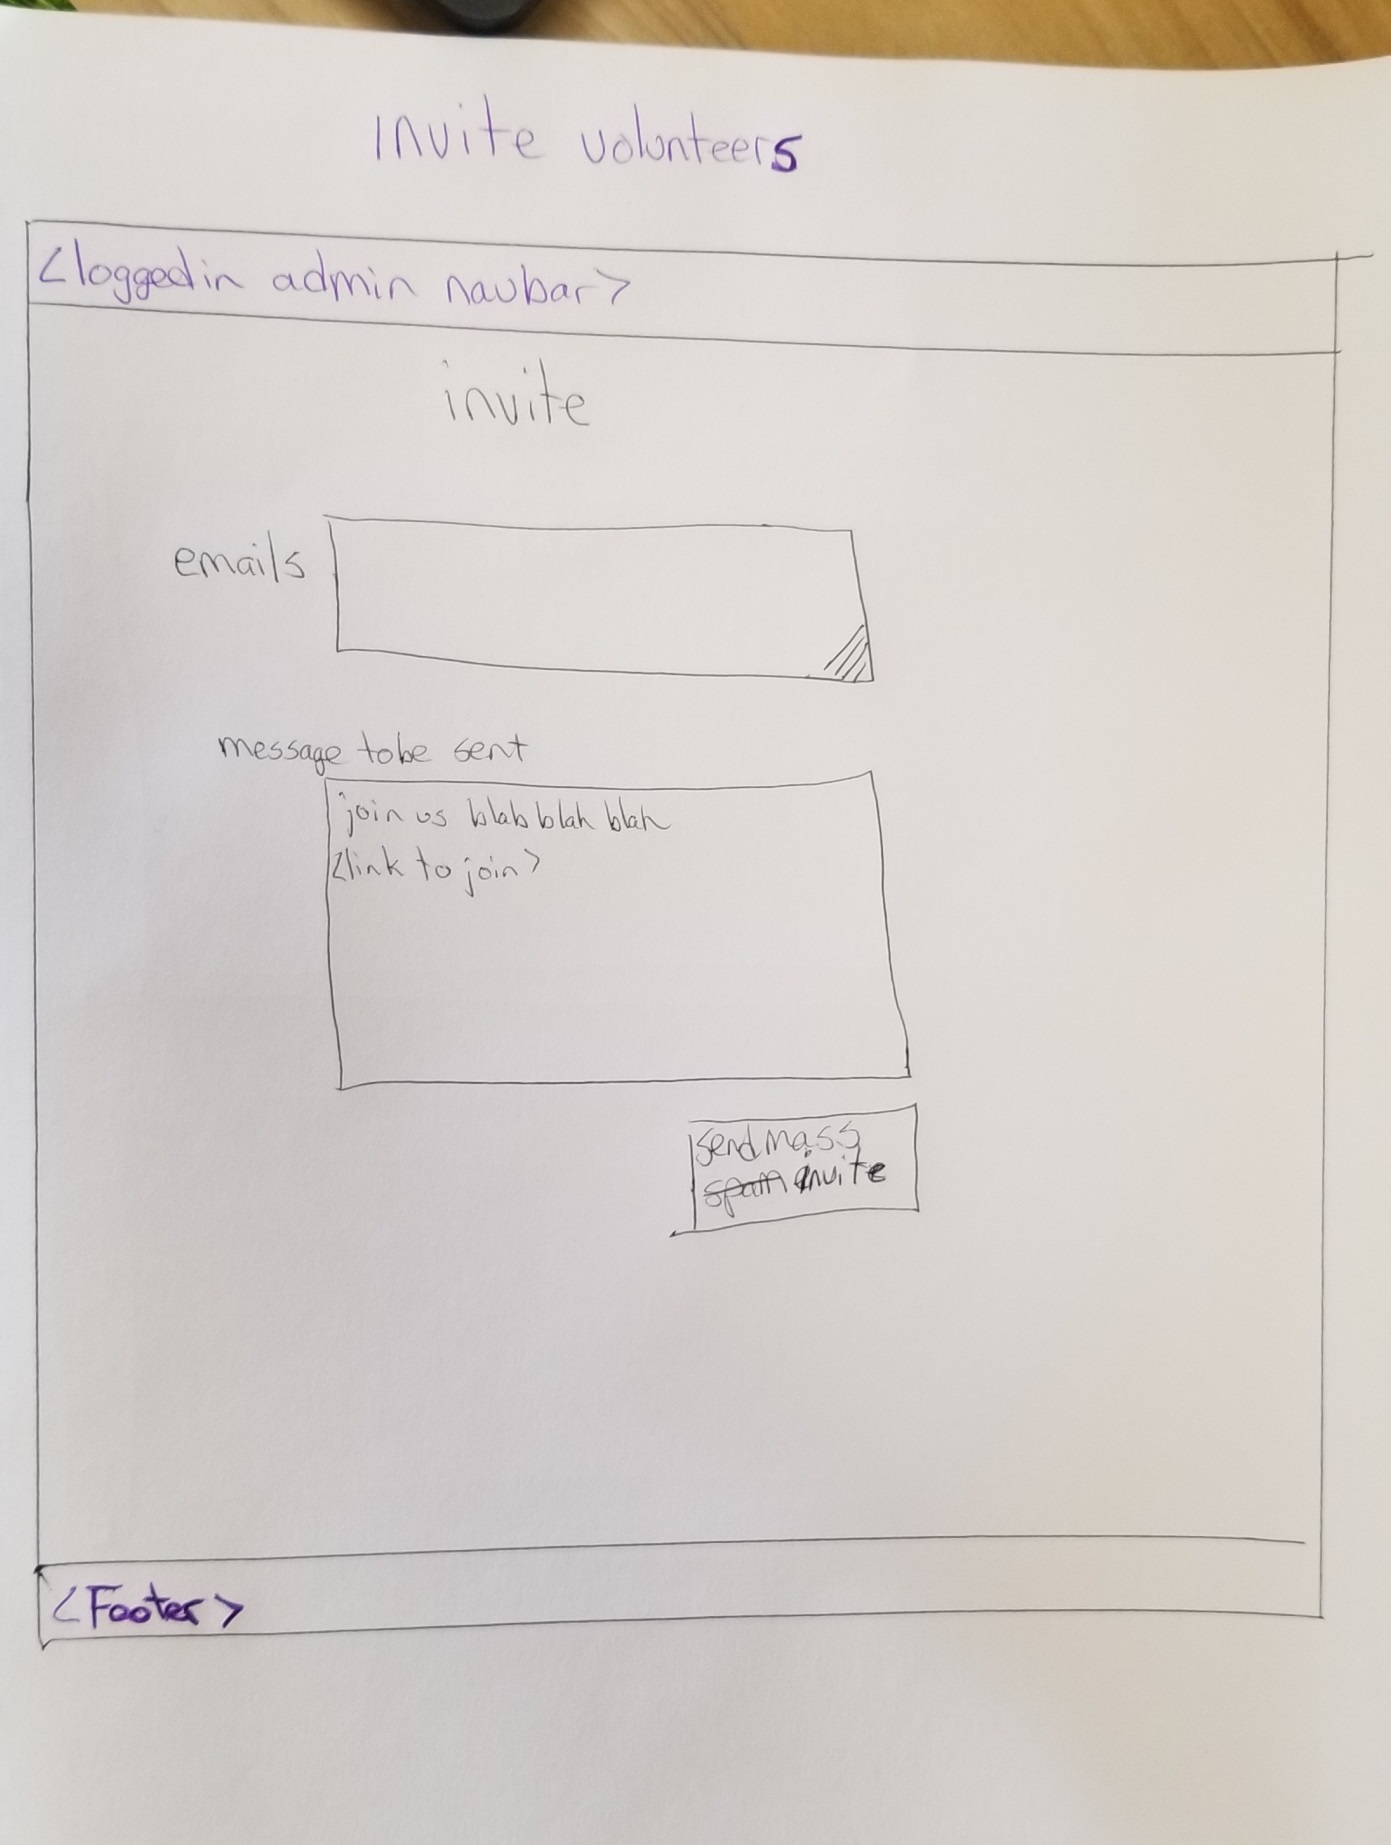 invite volunteers
<loggedin admin navbar>
invite
emails
message to be sent
join us blah blah blah
<link to join>
send mass
spam invite
<Footer>